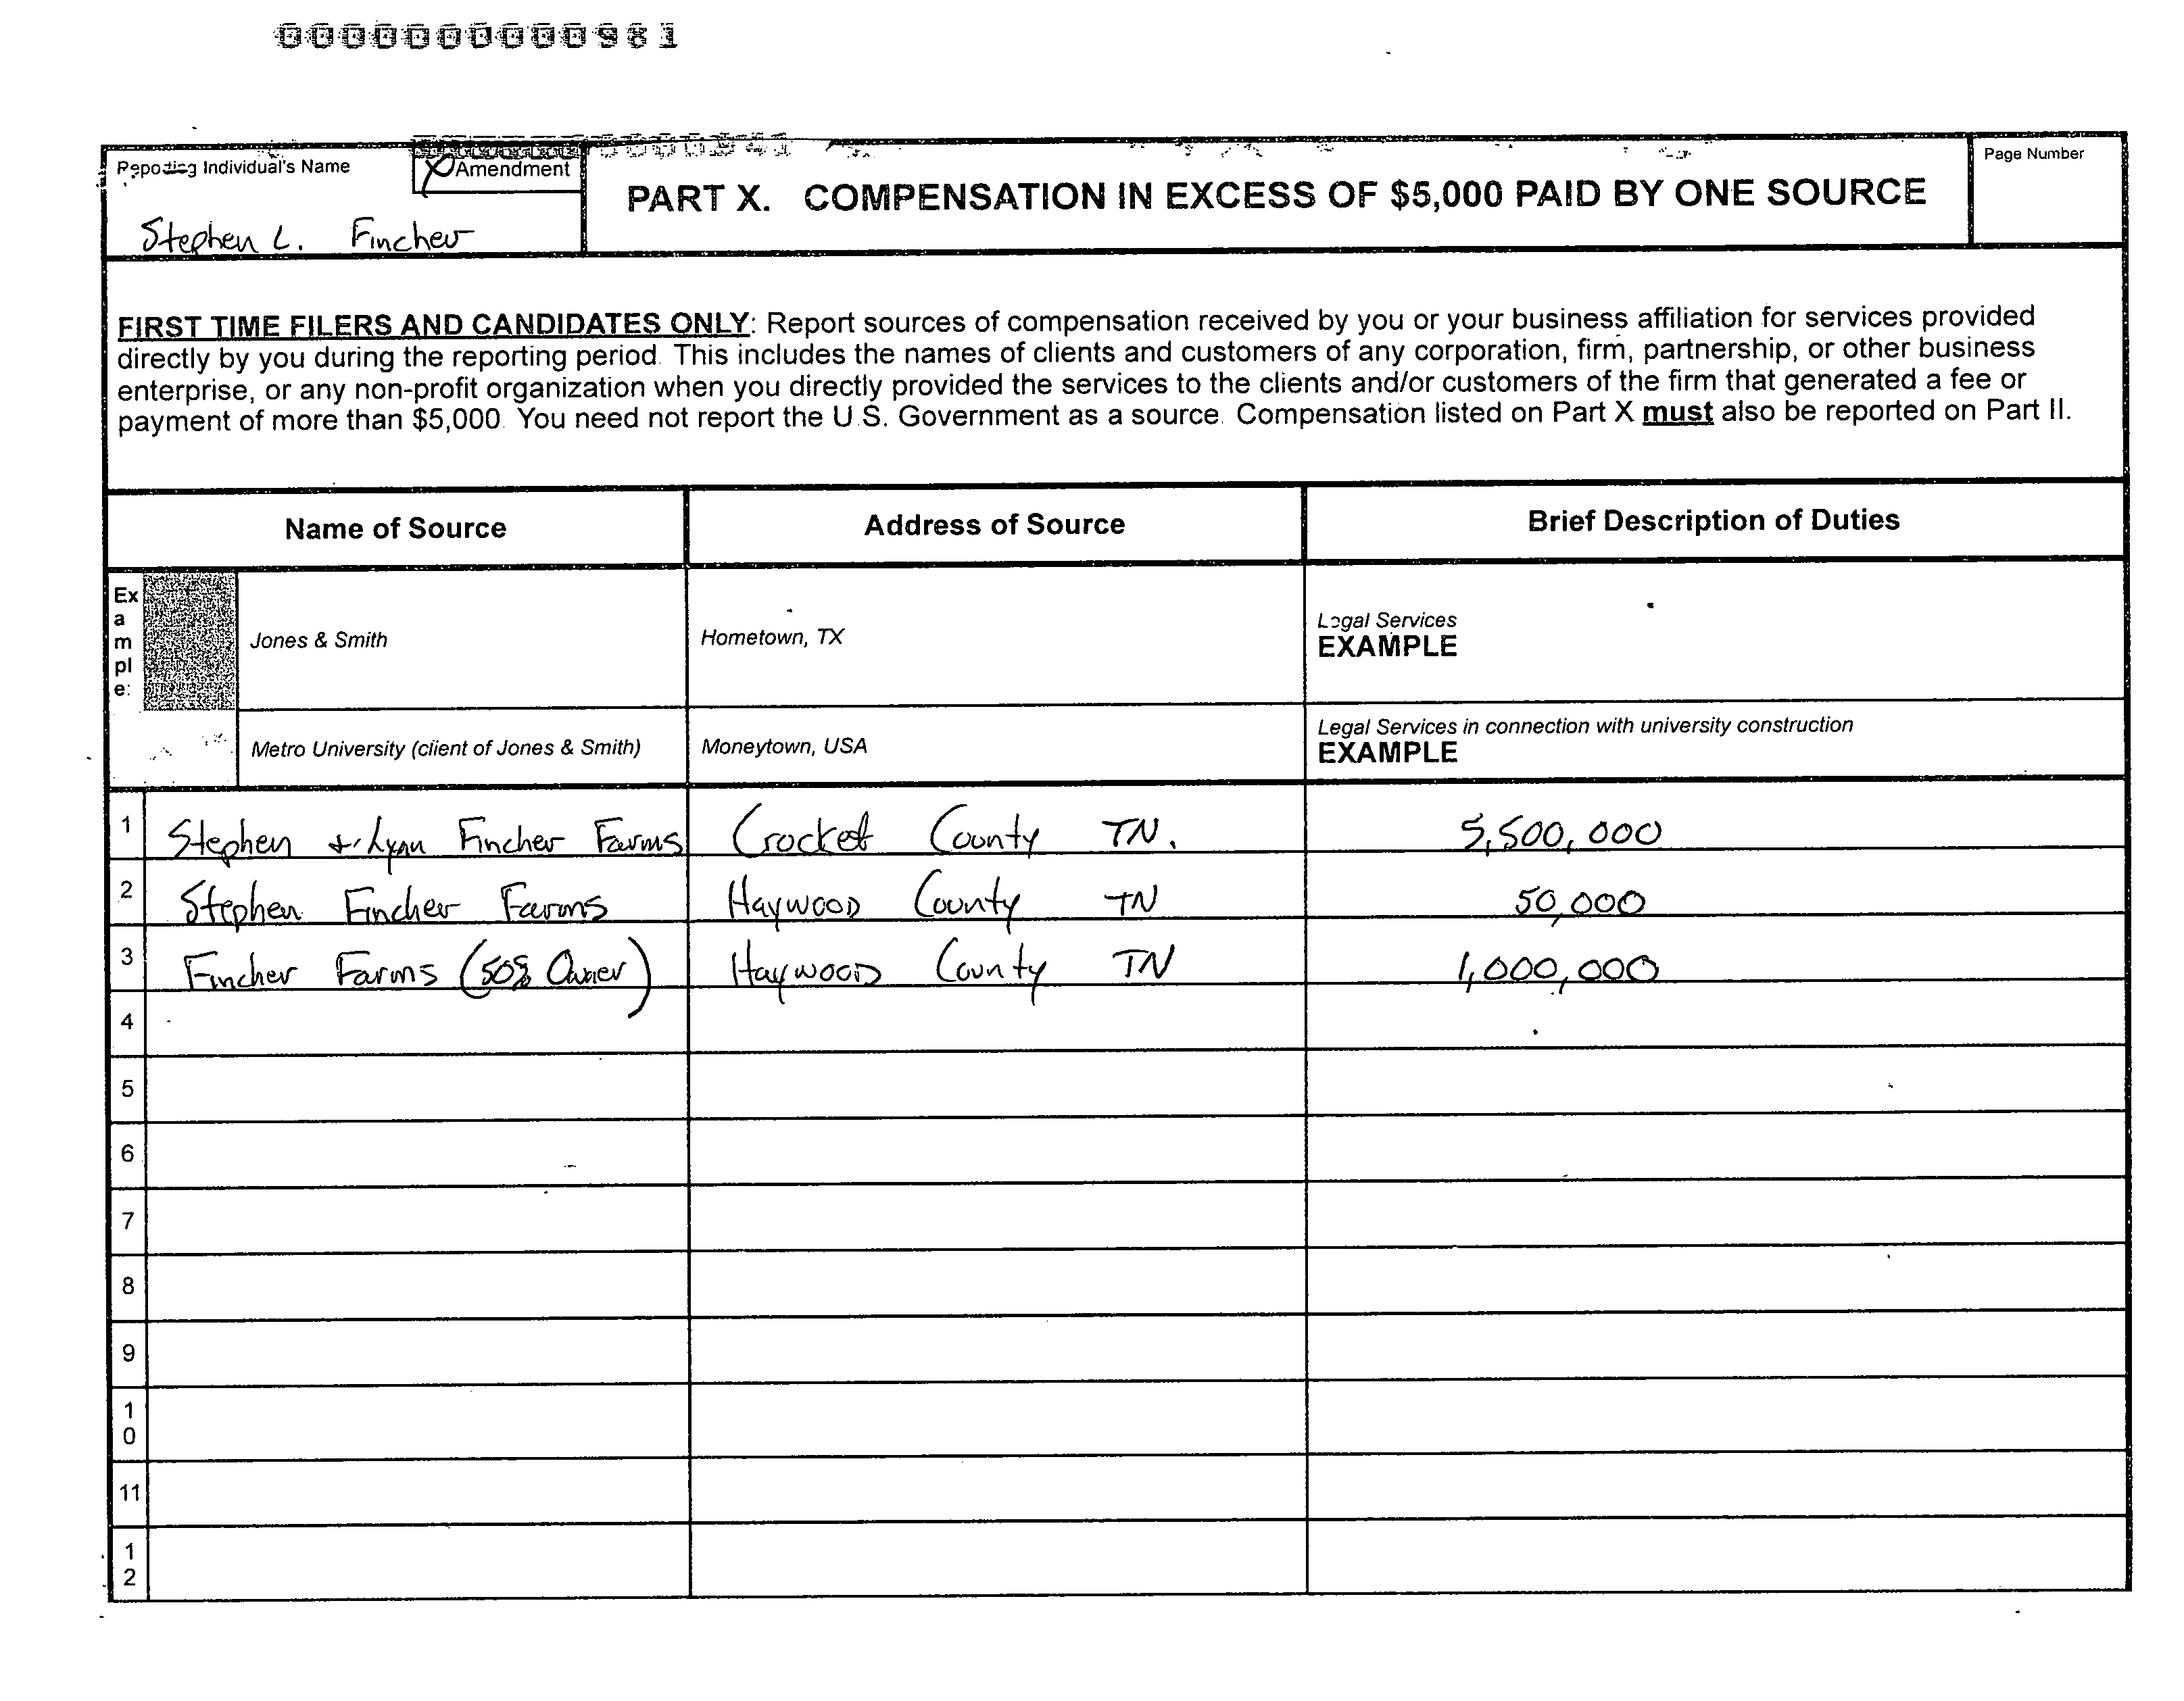 0000000000981
Reporting Individual's Name
Amendment
Stephen L. Fincher
PART X. COMPENSATION IN EXCESS OF $5,000 PAID BY ONE SOURCE
Page Number
FIRST TIME FILERS AND CANDIDATES ONLY: Report sources of compensation received by you or your business affiliation for services provided
directly by you during the reporting period. This includes the names of clients and customers of any corporation, firm, partnership, or other business
enterprise, or any non-profit organization when you directly provided the services to the clients and/or customers of the firm that generated a fee or
payment of more than $5,000. You need not report the U.S. Government as a source. Compensation listed on Part X must also be reported on Part II.
Name of Source Address of Source Brief Description of Duties
Ex
a
m
pl
e:
Jones & Smith Hometown, TX Legal Services
EXAMPLE
Metro University (client of Jones & Smith) Moneytown, USA Legal Services in connection with university construction
EXAMPLE
1 Stephen & Lynn Fincher Farms Crocket County TN. 5,500,000
2 Stephen Fincher Farms Haywood County TN 50,000
3 Fincher Farms (50% Owner) Haywood County TN 1,000,000
4
5
6
7
8
9
1
0
11
1
2